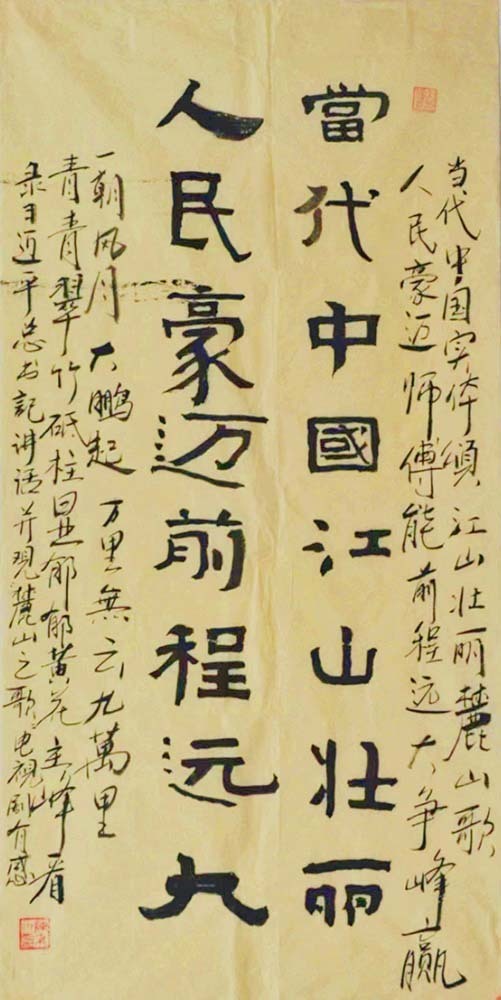 当代中国实体颂江山壮丽麓山歌
人民豪迈师傅能前程远大争峰赢
當代中國江山壮丽
人民豪迈前程远大
一朝风月大鹏起万里無云九萬里
青青翠竹砥柱显郁郁黄花主峰看
录习近平总书記讲话并观麓山之歌电视剧有感